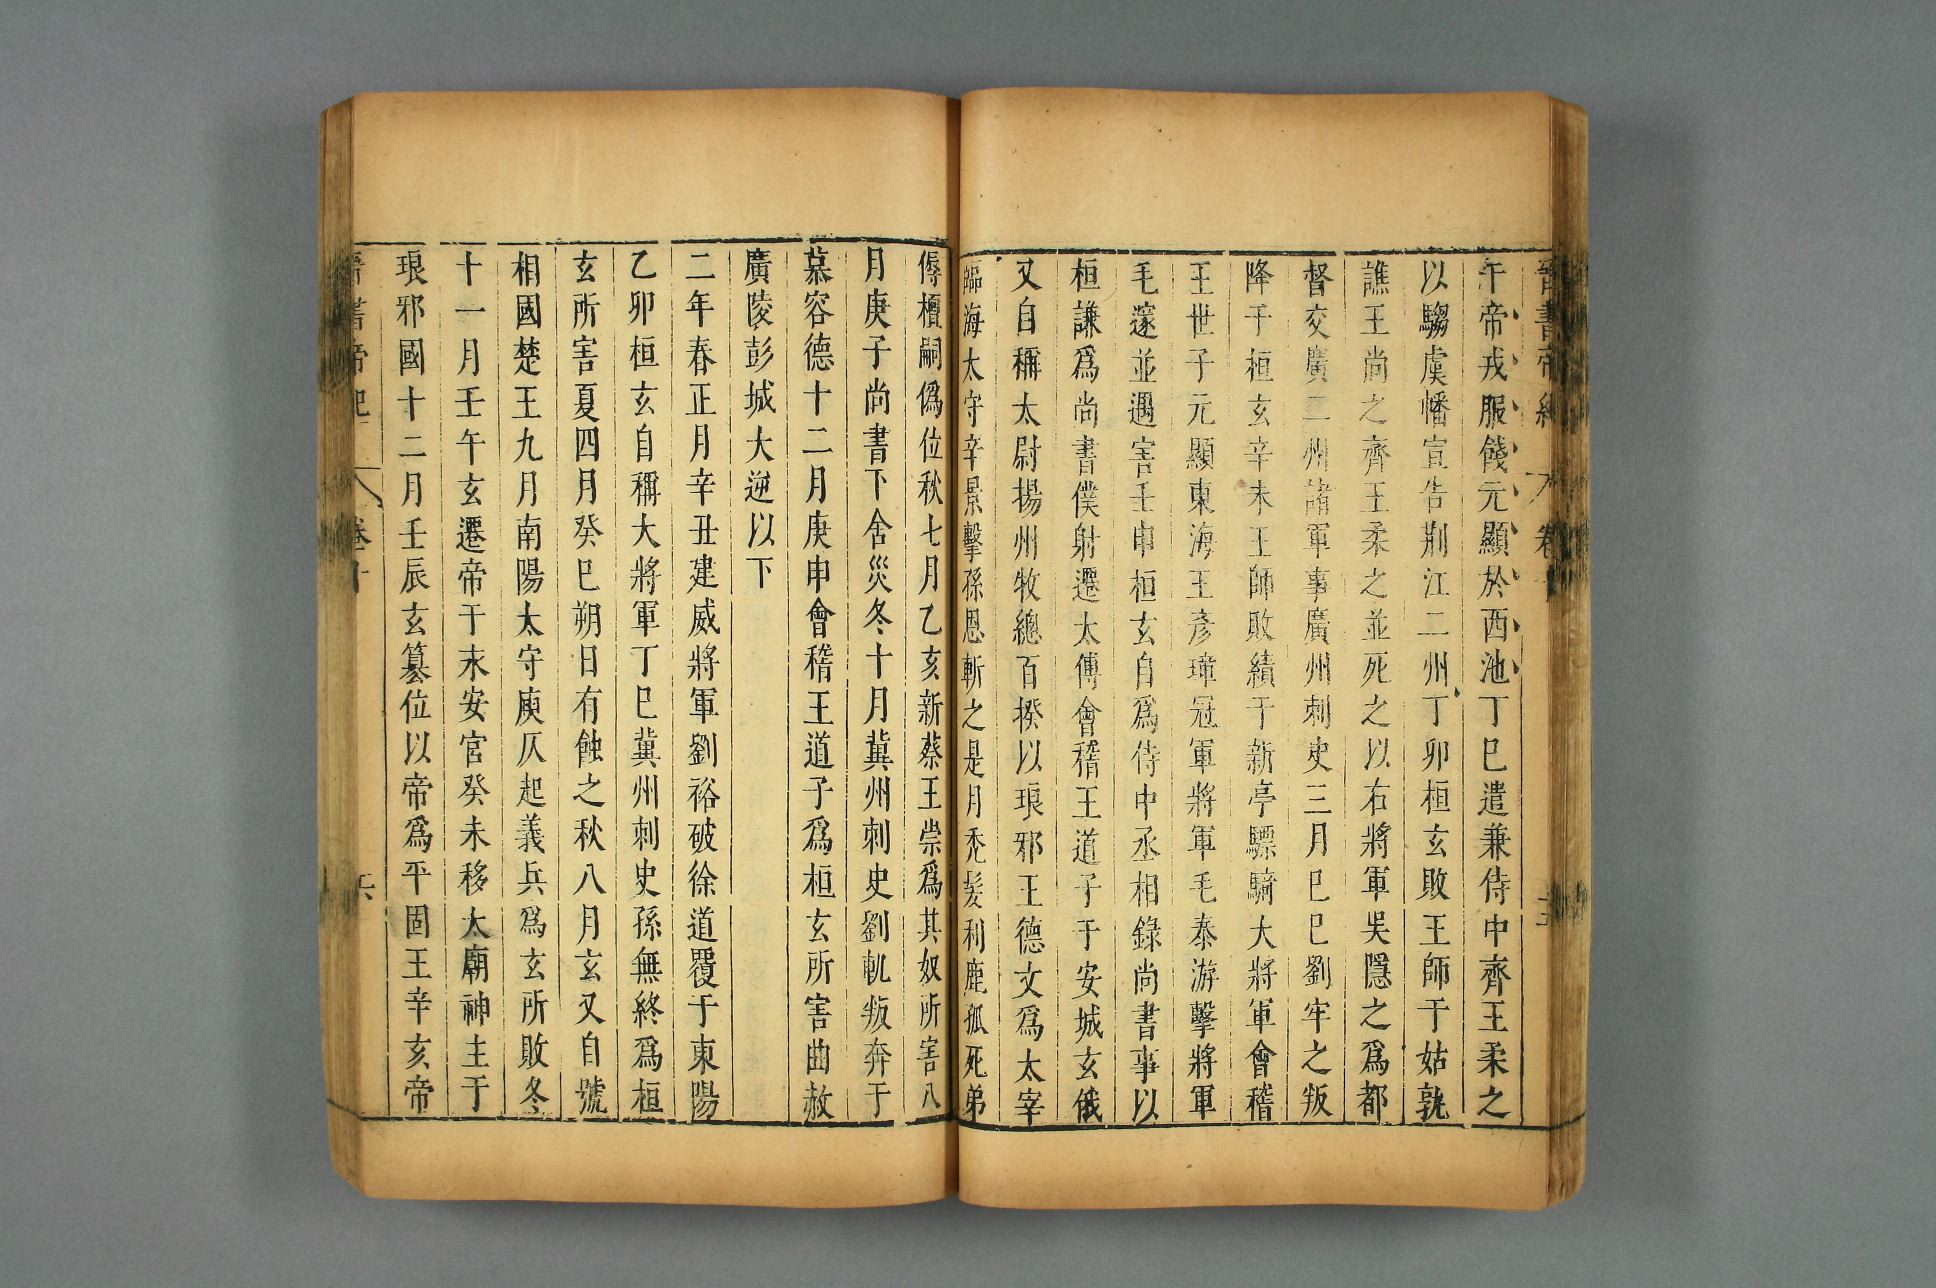 晉書帝紀 卷十
午帝戎服餞元顯於西池丁巳遣兼侍中齊王柔之
以騶虞幡宣告荆江二州丁卯桓玄敗王師于姑孰
譙王尚之齊王柔之並死之以右將軍吳隱之爲都
督交廣二州諸軍事廣州刺史三月己巳劉牢之叛
降于桓玄辛未王師敗績于新亭驃騎大將軍會稽
王世子元顯東海王彥璋冠軍將軍毛泰游擊將軍
毛邃並遇害壬申桓玄自爲侍中丞相錄尚書事以
桓謙爲尚書僕射遷太傅會稽王道子于安城玄俄
又自稱太尉揚州牧總百揆以琅邪王德文爲太宰
臨海太守辛景擊孫恩斬之是月禿髮利鹿孤死弟
傉檀嗣僞位秋七月乙亥新蔡王崇爲其奴所害八
月庚子尚書下舍災冬十月冀州刺史劉軌叛奔于
慕容德十二月庚申會稽王道子爲桓玄所害曲赦
廣陵彭城大逆以下
二年春正月辛丑建威將軍劉裕破徐道覆于東陽
乙卯桓玄自稱大將軍丁巳冀州刺史孫無終爲桓
玄所害夏四月癸巳朔日有蝕之秋八月玄又自號
相國楚王九月南陽太守庾仄起義兵爲玄所敗冬
十一月壬午玄遷帝于永安宮癸未移太廟神主于
琅邪國十二月壬辰玄篡位以帝爲平固王辛亥帝
晉書帝紀 卷十